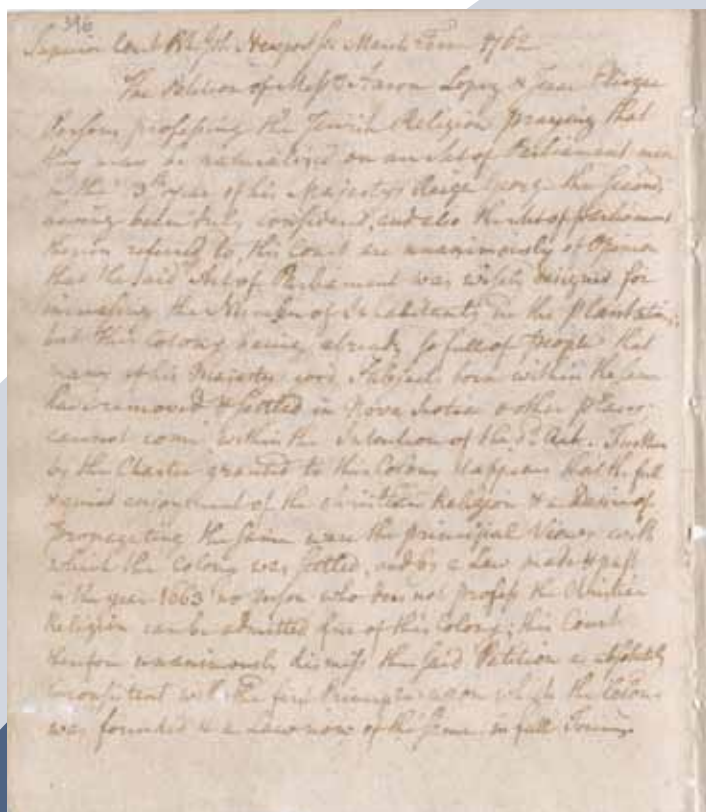 396
Superior Court Newport ss March Term 1762
The Petition of Messrs Aaron Lopez & Isaac Elizer
Persons professing the Jewish Religion praying that
they may be naturalized on an Act of Parliament made
in the 13th year of his Majestys Reign George the Second
having been duly considered, and also the Act of Parliament
therein referred to, this Court are unanimously of Opinion
that the said Act of Parliament was wisely designed for
increasing the Number of Inhabitants in the plantations;
but this Colony being already so full of people that
many of his Majestys good Subjects born within the same
have removed & settled in Nova Scotia & other places
cannot come within the Intention of the sd Act. Further
by the Charter granted to this Colony it appears that the full
& quiet enjoyment of the Christian Religion & a Desire of
propagating the same were the principal Views with
which the Colony was settled, and by a Law made & past
in the year 1663 no person who does not profess the Christian
Religion can be admitted free of this Colony; this Court
therefore unanimously dismiss the said Petition as absolutely
inconsistent with the first Principles upon which the Colony
was founded & a Law now of the same in full Force